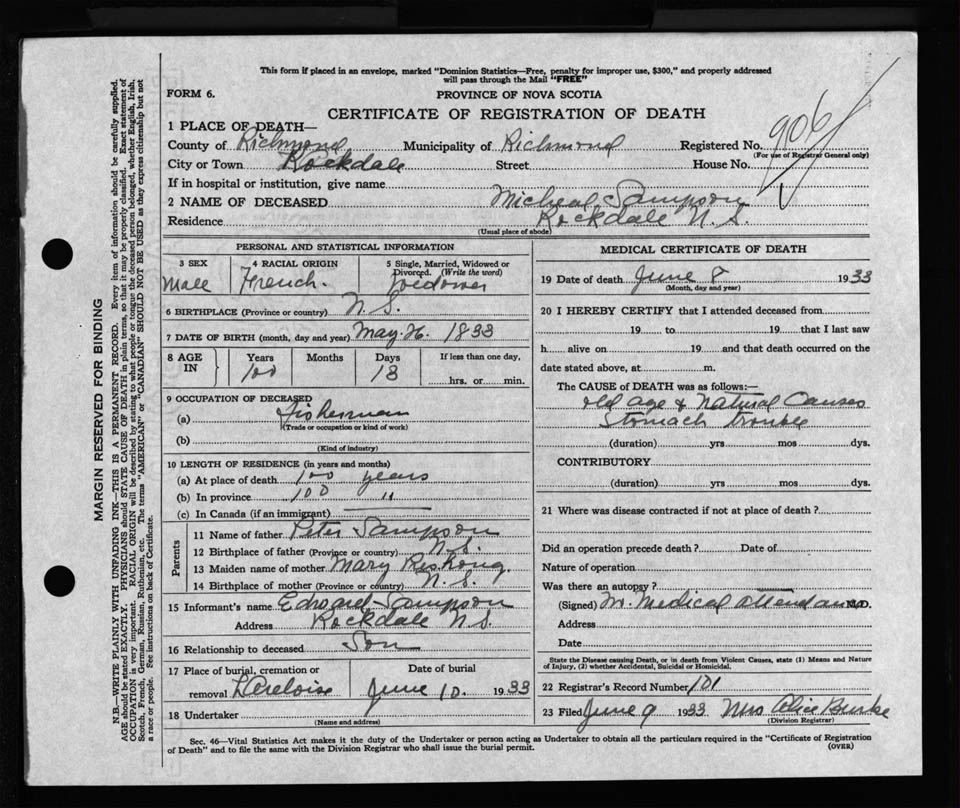 This form if placed in an envelope, marked "Dominion Statistics—Free, penalty for improper use, $300," and properly addressed
will pass through the Mail "FREE"
FORM 6.
PROVINCE OF NOVA SCOTIA
CERTIFICATE OF REGISTRATION OF DEATH
1 PLACE OF DEATH—
County of Richmond Municipality of Richmond Registered No. 906
(For use of Registrar General only)
City or Town Rockdale Street House No.
If in hospital or institution, give name
2 NAME OF DECEASED Micheal Sampson
Residence Rockdale N.S.
(Usual place of abode)
PERSONAL AND STATISTICAL INFORMATION
3 SEX
Male
4 RACIAL ORIGIN
French.
5 Single, Married, Widowed or
Divorced. (Write the word)
Widower
6 BIRTHPLACE (Province or country) N.S.
7 DATE OF BIRTH (month, day and year) May. 26 1833
8 AGE IN
Years 100
Months
Days 13
If less than one day,
hrs. or min.
9 OCCUPATION OF DECEASED
(a) Fisherman
(Trade or occupation or kind of work)
(b)
(Kind of industry)
10 LENGTH OF RESIDENCE (in years and months)
(a) At place of death 100 years
(b) In province 100 "
(c) In Canada (if an immigrant)
Parents
11 Name of father Peter Sampson
12 Birthplace of father (Province or country) N.S.
13 Maiden name of mother Mary
14 Birthplace of mother (Province or country) N.S.
15 Informant's name Edward Sampson
Address Rockdale N.S.
16 Relationship to deceased Son
17 Place of burial, cremation or
removal
Date of burial
June 10. 1933
18 Undertaker
(Name and address)
MEDICAL CERTIFICATE OF DEATH
19 Date of death June 8 1933
(Month, day and year)
20 I HEREBY CERTIFY that I attended deceased from
19 to 19 that I last saw
h alive on 19 and that death occurred on the
date stated above, at m.
The CAUSE of DEATH was as follows:—
old age & Natural Causes
Stomach trouble
(duration) yrs mos dys.
CONTRIBUTORY
(duration) yrs. mos dys.
21 Where was disease contracted if not at place of death?
Did an operation precede death? Date of
Nature of operation
Was there an autopsy?
(Signed) Medical attendance M.D.
Address
Date
State the Disease causing Death, or in death from Violent Causes, state (1) Means and Nature
of Injury, (2) whether Accidental, Suicidal or Homicidal.
22 Registrar's Record Number 101
23 Filed June 9 1933 Mrs Alice Burke
(Division Registrar)
Sec. 46—Vital Statistics Act makes it the duty of the Undertaker or person acting as Undertaker to obtain all the particulars required in the "Certificate of Registration
of Death" and to file the same with the Division Registrar who shall issue the burial permit.
(OVER)
MARGIN RESERVED FOR BINDING
N.B.—WRITE PLAINLY WITH UNFADING INK—THIS IS A PERMANENT RECORD. Every item of information should be carefully supplied.
AGE should be stated EXACTLY. PHYSICIANS should STATE CAUSE OF DEATH in plain terms, so that it may be properly classified. Exact statement of
OCCUPATION is very important. RACIAL ORIGIN will be described by stating to what people or tongue the deceased person belonged, whether English, Irish,
Scotch, French, German, Russian, Ruthenian, etc. The terms "AMERICAN" or "CANADIAN" SHOULD NOT BE USED as they express citizenship but not
a race or people. See instructions on back of Certificate.